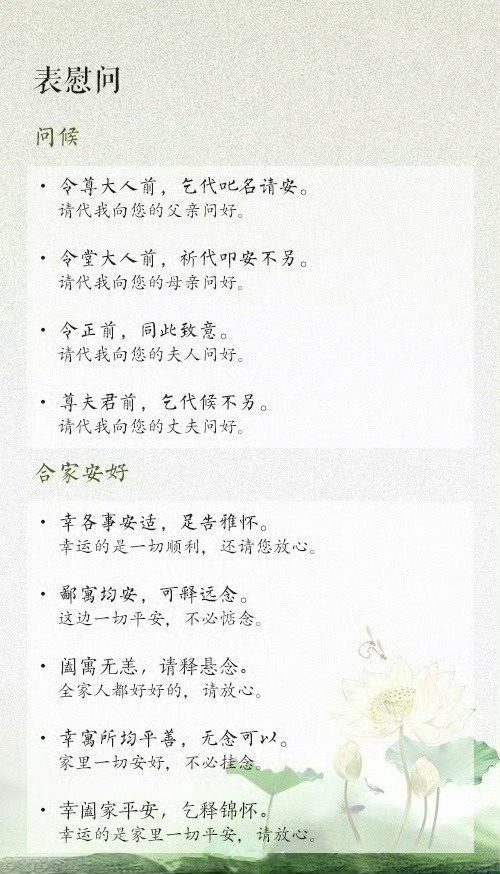 表慰问
问候
• 令尊大人前，乞代叱名请安。
请代我向您的父亲问好。
• 令堂大人前，祈代叩安不另。
请代我向您的母亲问好。
• 令正前，同此致意。
请代我向您的夫人问好。
• 尊夫君前，乞代候不另。
请代我向您的丈夫问好。
合家安好
• 幸各事安适，足告雅怀。
幸运的是一切顺利，还请您放心。
• 鄙寓均安，可释远念。
这边一切平安，不必惦念。
• 阖寓无恙，请释悬念。
全家人都好好的，请放心。
• 幸寓所均平善，无念可以。
家里一切安好，不必挂念。
• 幸阖家平安，乞释锦怀。
幸运的是家里一切平安，请放心。